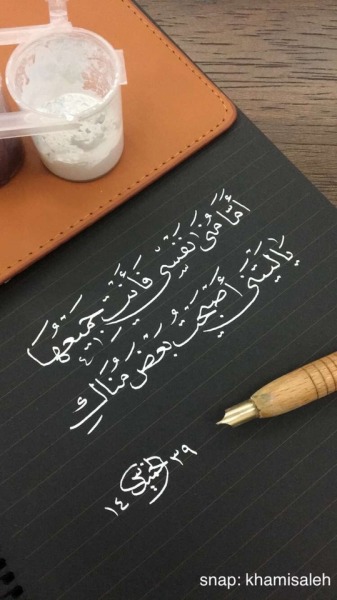 أَمَّا مُنَى نَفْسِي فَأَنْتِ جَمِيعُهَا
يَا لَيْتَنِي أَصْبَحْتُ بَعْضَ مُنَاكِ
١٤ ٣٩
snap: khamisaleh